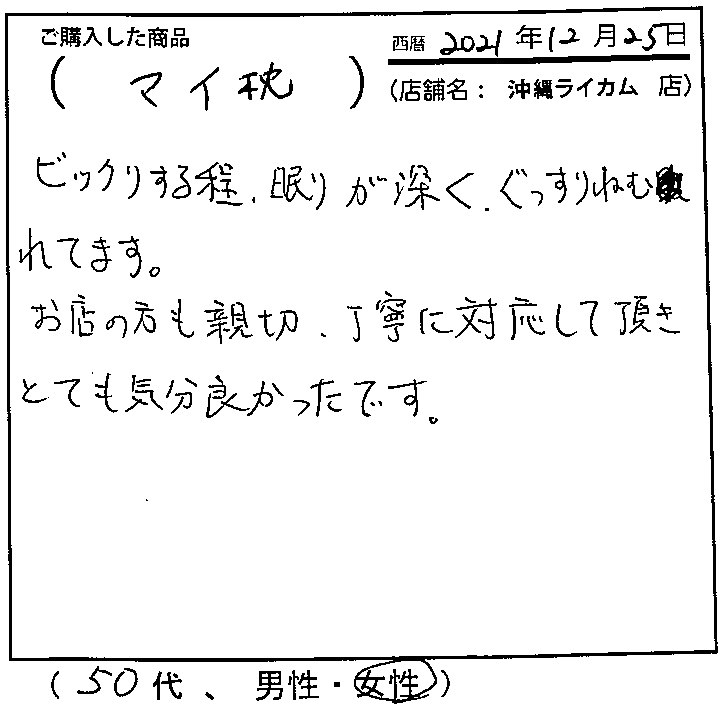 ご購入した商品
西暦 2021 年 12 月 25 日
( マイ枕 )
(店舗名： 沖縄ライカム 店)
ビックリする程、眠りが深く、ぐっすりねむ
れてます。
お店の方も親切、丁寧に対応して頂き
とても気分良かったです。
( 50 代 、 男性・女性 )